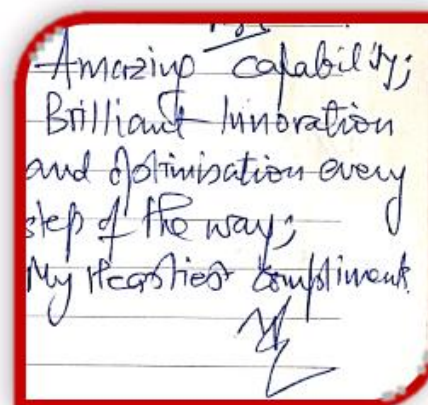 Amazing capability;
Brilliant Innovation
and optimisation every
step of the way;
My Heartiest compliments